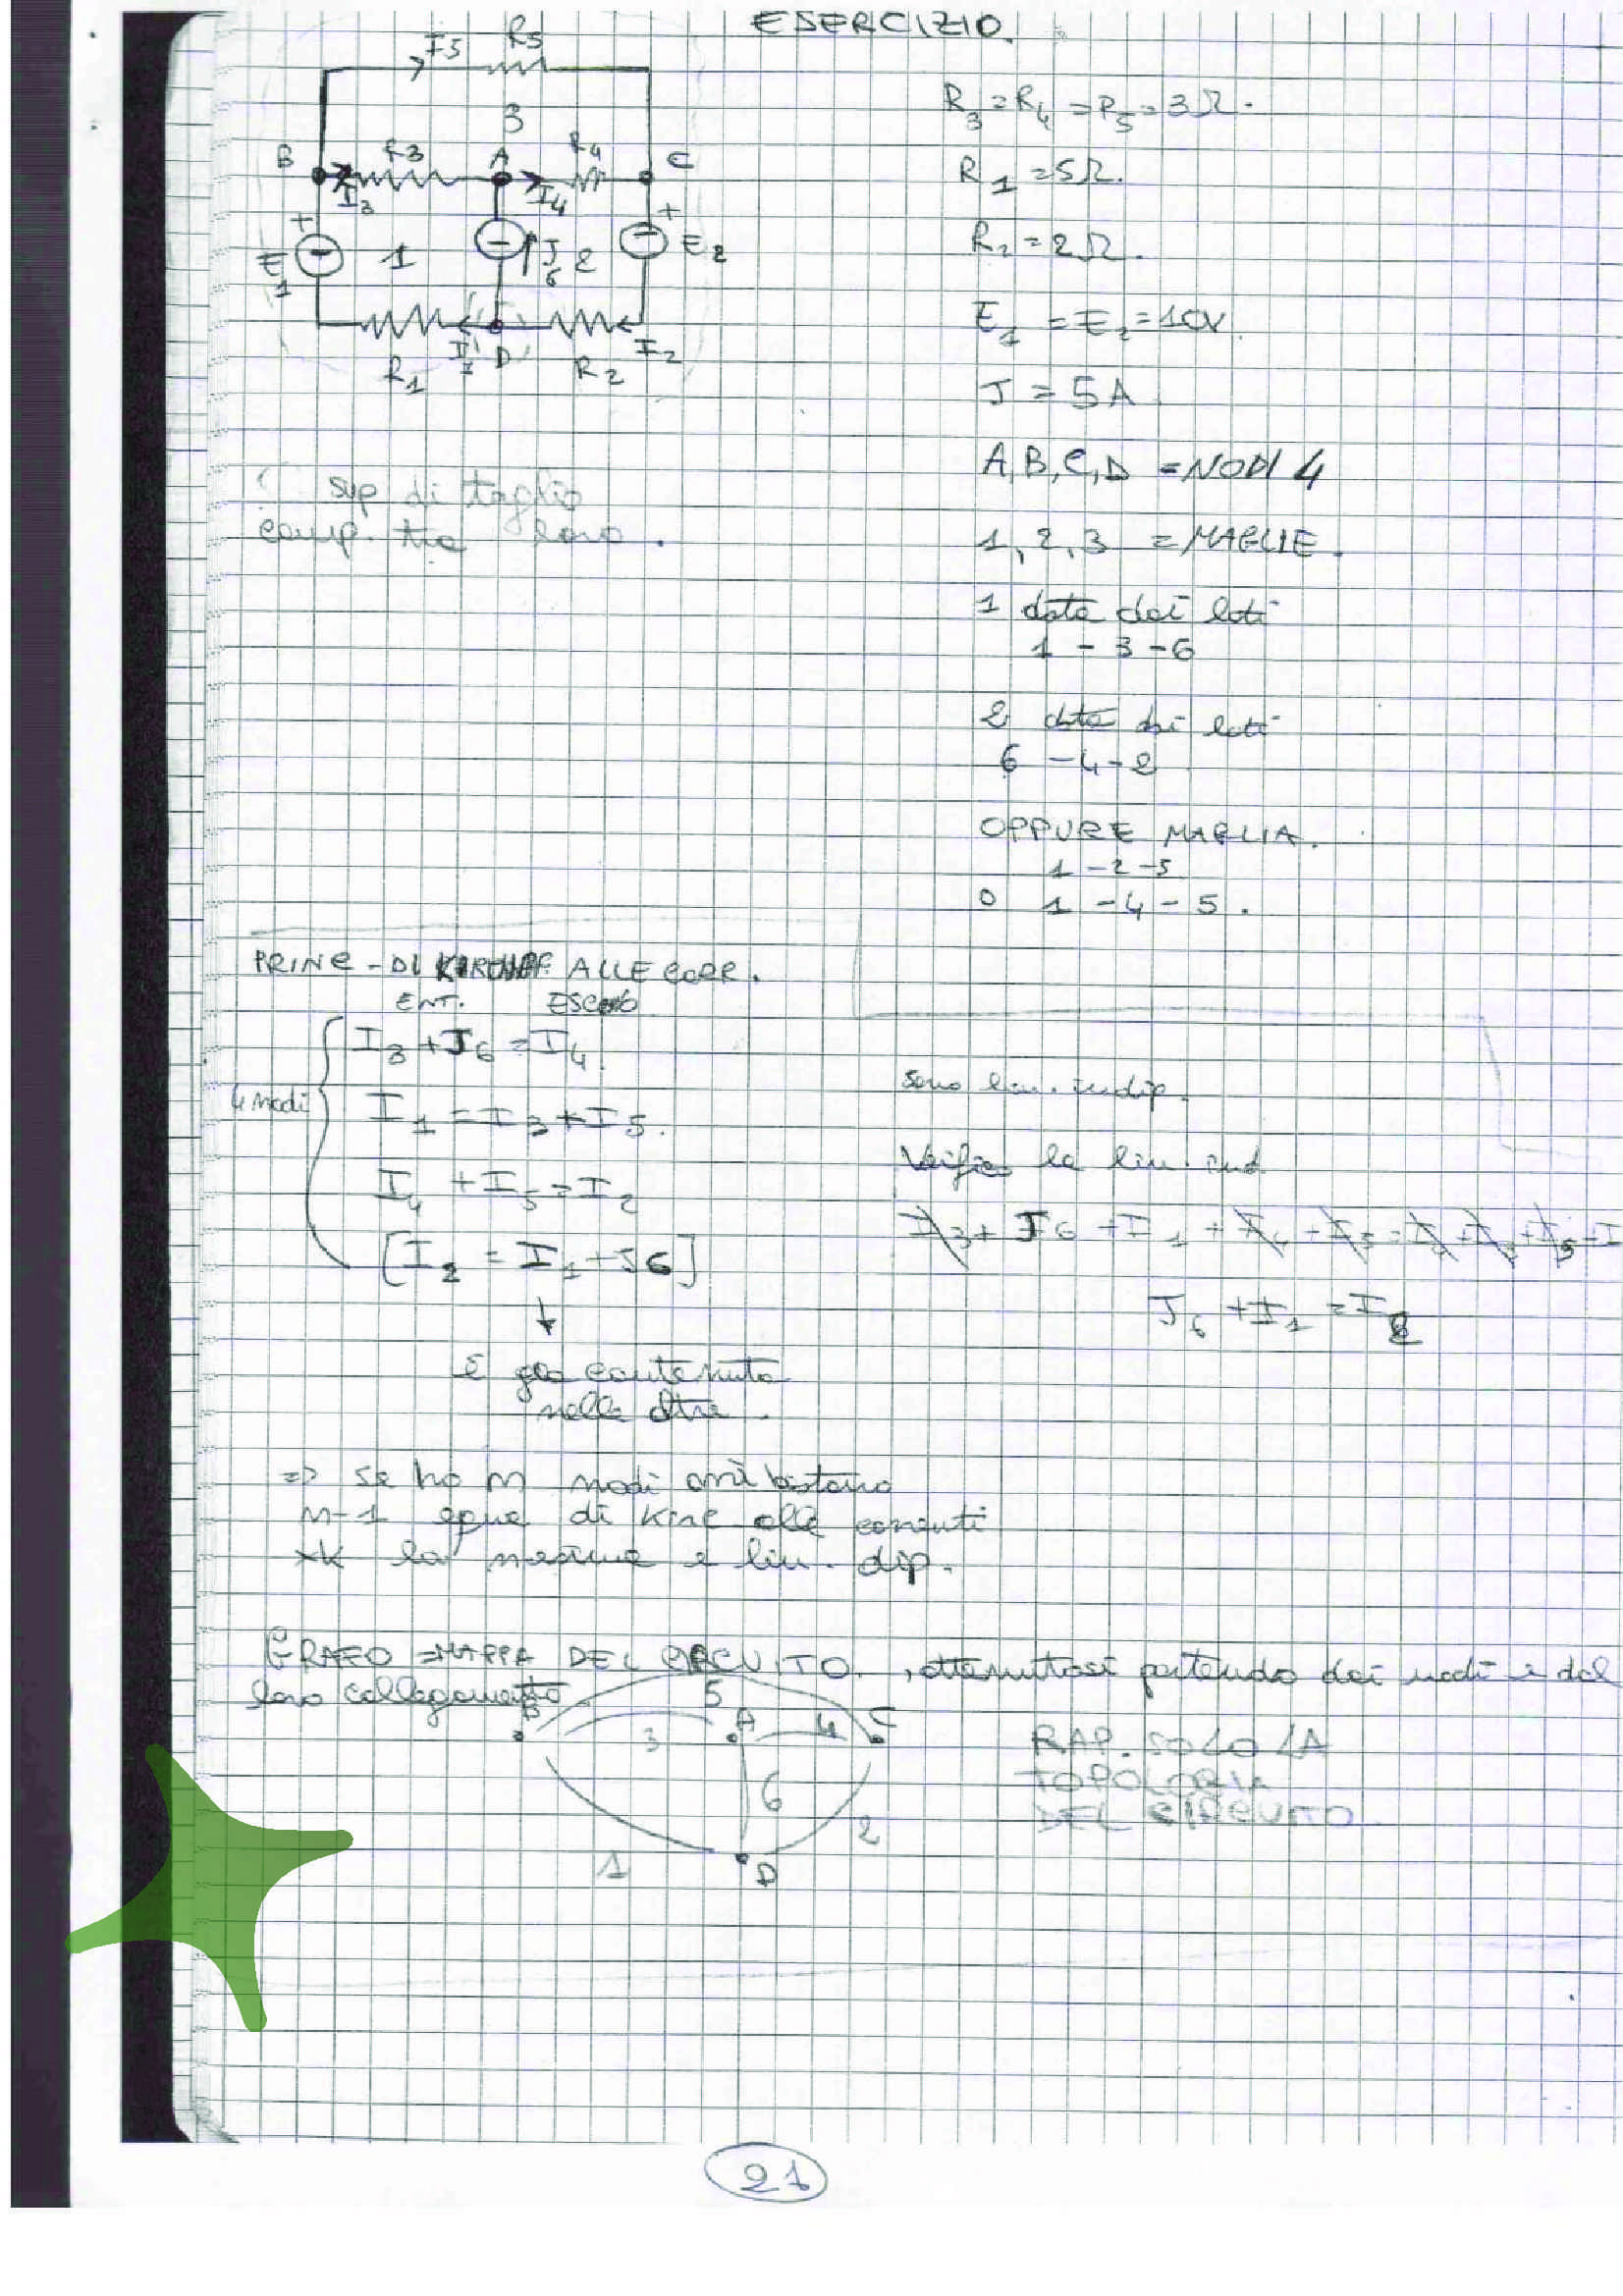 ESERCIZIO.
I5 R5
3
B R3 A R4 C
I3 I4
+ +
E1 1 J6 2 E2
I1 D I2
R1 R2
R3 = R4 = R5 = 3Ω.
R1 = 5Ω.
R2 = 2Ω.
E1 = E2 = 10V
J = 5A.
A, B, C, D = NODI 4
1, 2, 3 = MAGLIE.
1 data dai lati
1 - 3 - 6
2 data dai lati
6 - 4 - 2
OPPURE MAGLIA.
1 - 2 - 5
O 1 - 4 - 5.
sup. di taglio
comp. tra loro.
PRINC - DI KIRCHHF. ALLE CORR.
ENT. ESCONO
4 nodi
I3 + J6 = I4
I1 = I3 + I5.
I4 + I5 = I2
[I2 = I1 + J6]
↓
È già contenuta
nelle altre.
sono lin. indip.
Verifico la lin. ind
I3 + J6 + I1 + I4 + I5 = I4 + I3 + I5 + I
J6 + I1 = I2
=> se ho n nodi mi bastano
n-1 eque di Kirc alle correnti
xk la nesima è lin. dip.
GRAFO = MAPPA DEL CIRCUITO, ottenutosi partendo dai nodi e dal
loro collegamento
B 5
3 A 4 C
6
1 2
D
RAP. SOLO LA
TOPOLOGIA
DEL CIRCUITO
21